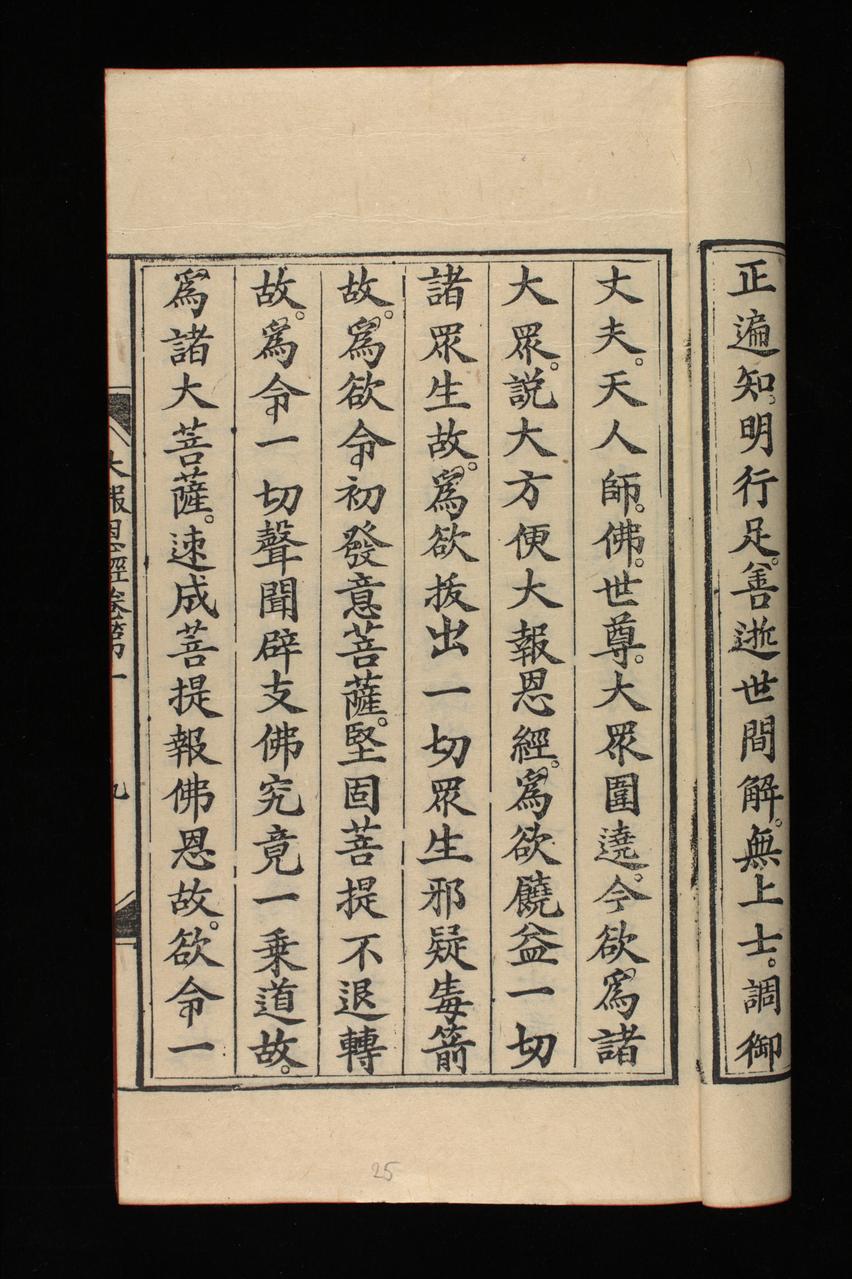 正遍知。明行足。善逝世間解。無上士。調御
丈夫。天人師。佛。世尊。大眾圍遶。今欲爲諸
大眾。説大方便大報恩經。爲欲饒益一切
諸眾生故。爲欲拔出一切眾生邪疑毒箭
故。爲欲令初發意菩薩。堅固菩提不退轉
故。爲令一切聲聞辟支佛究竟一乘道故。
爲諸大菩薩。速成菩提報佛恩故。欲令一
大報恩經卷第一
九
25